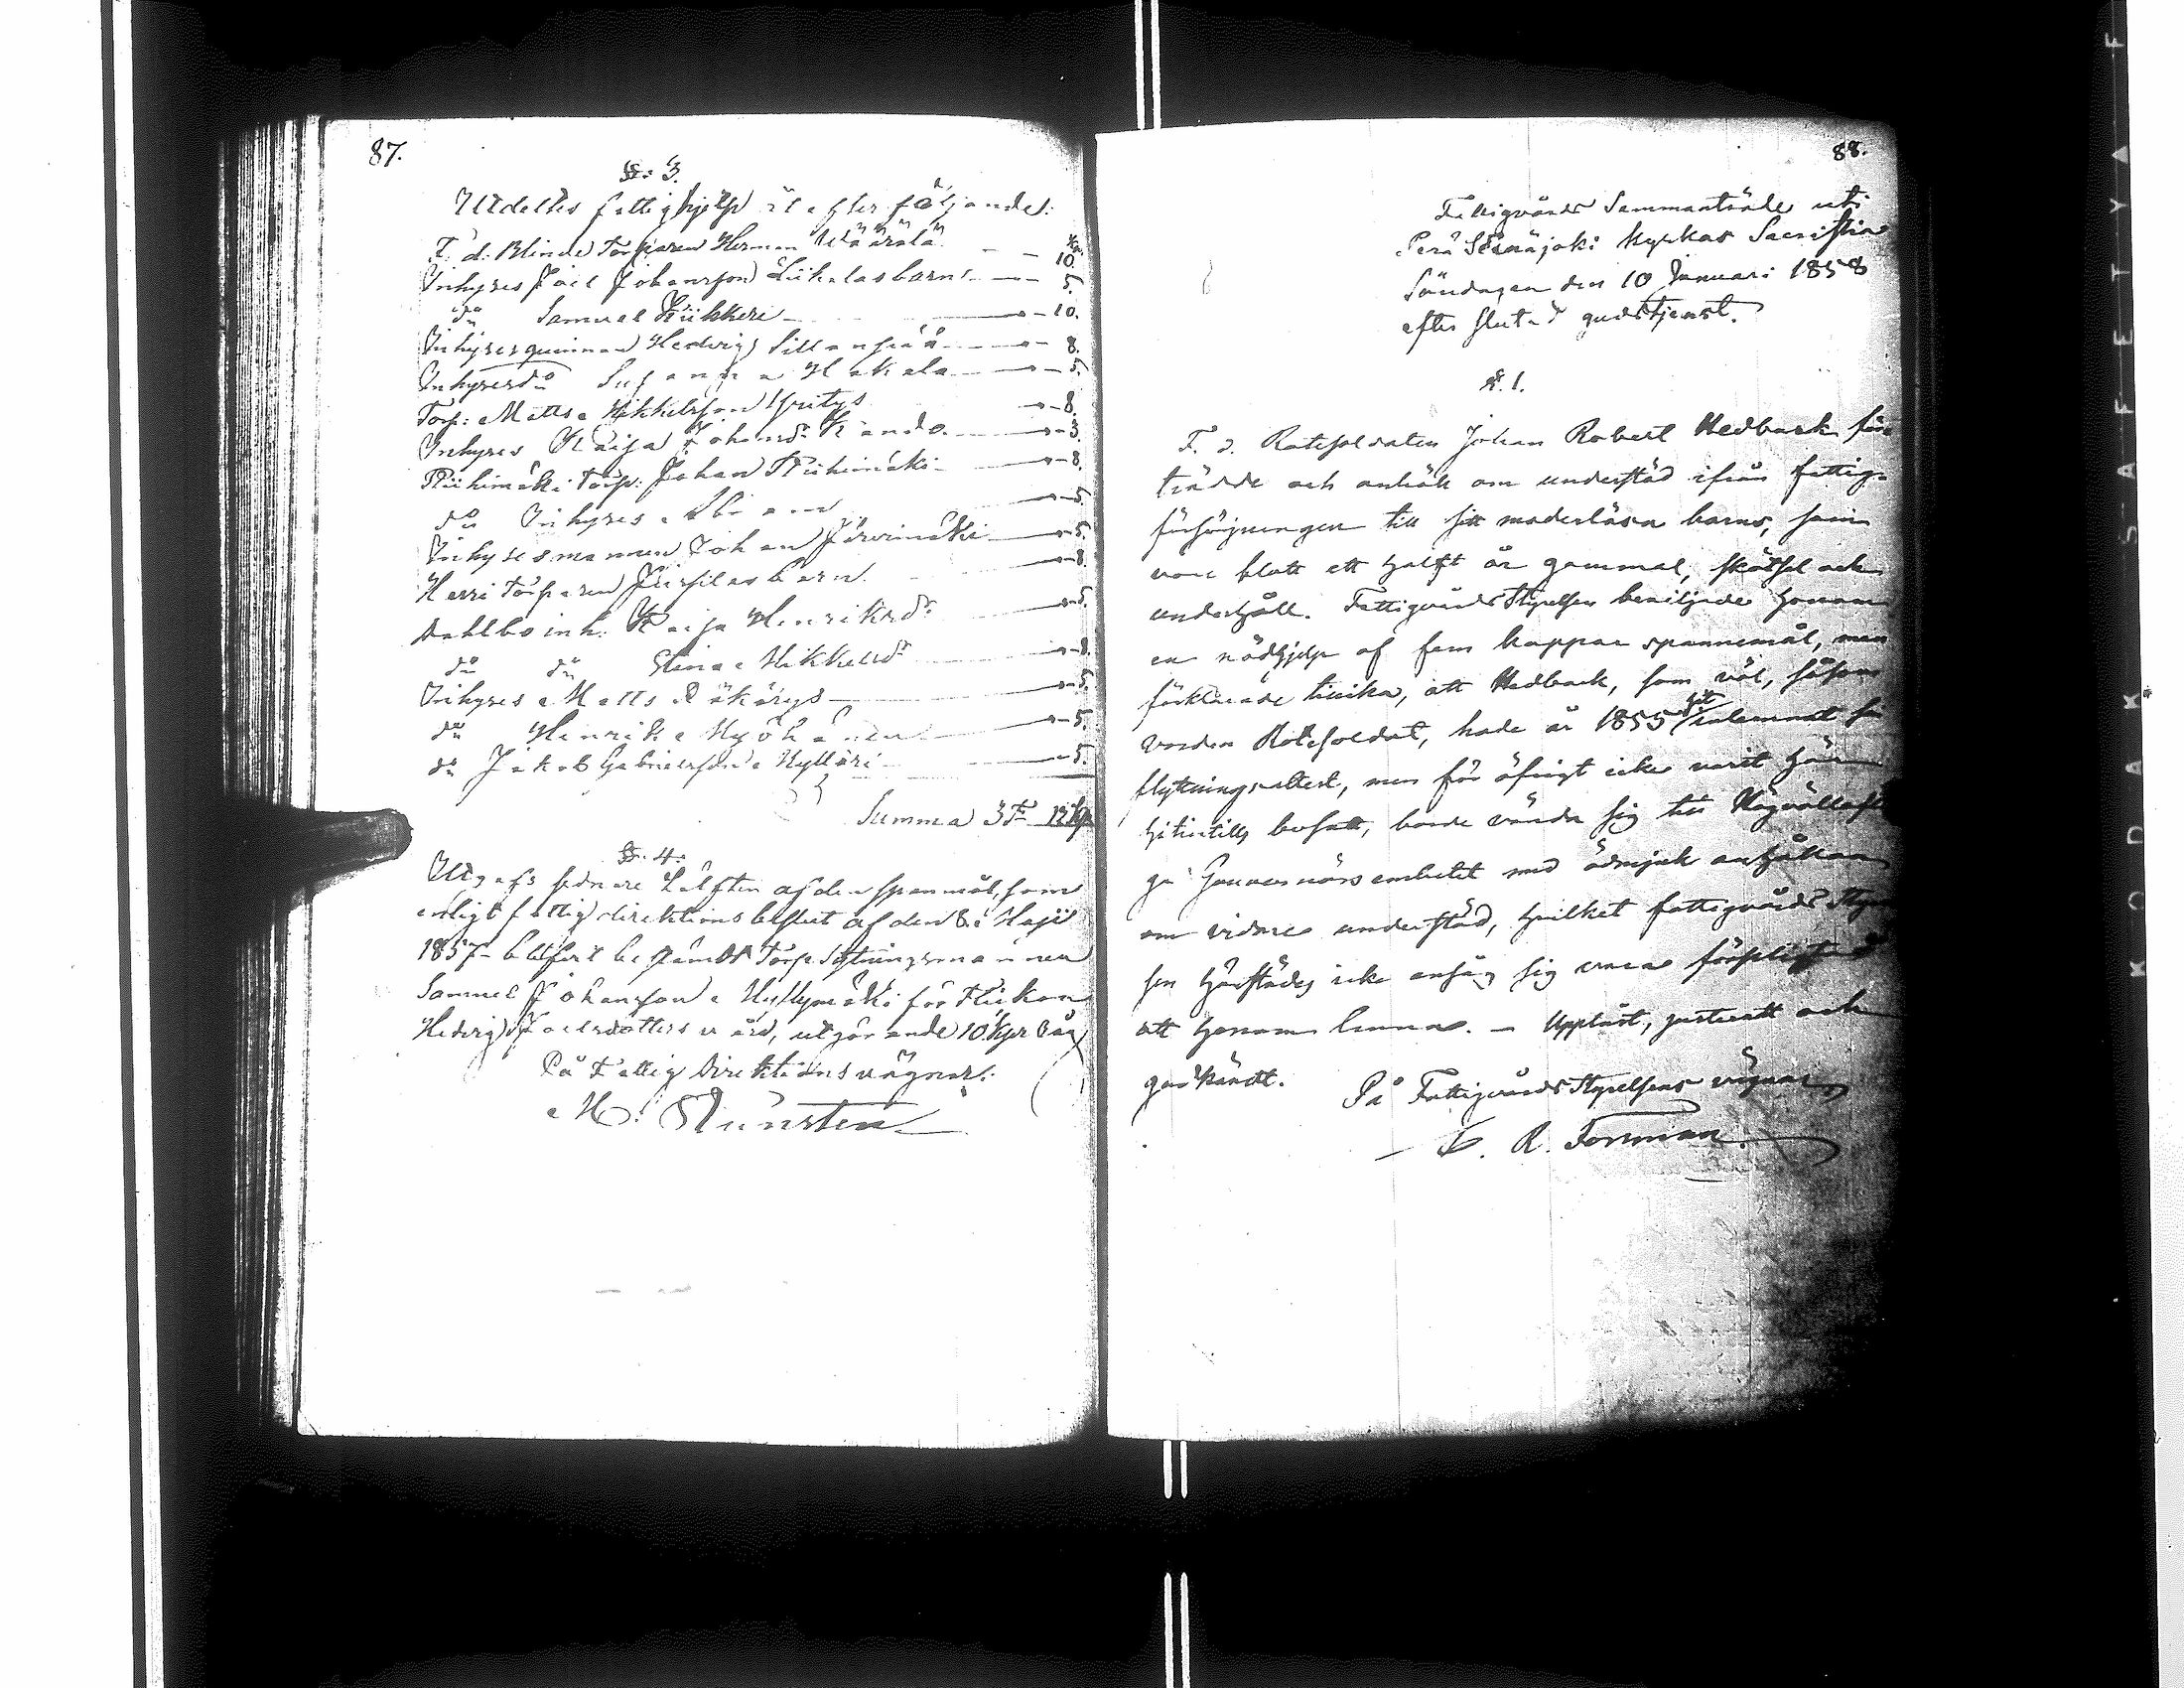 87.
§. 3.
Utdeltes fattighjelp åt efterföljande:
F. d. Blinde Torparen Herman Wäärälä — 10.
Inhyses Joel Johansson Liikalas barn — 5.
dö Samuel Kiikkeri — 10.
Inhysesqvinnan Hedvig Sillanpää — 8.
Inhyses dö Susanna Hakala — 5.
Torp: Matts Mikkelsson Yritys — 8.
Inhyses Kaija Johansdr Kando — 3.
Riihimäki Torp: Johan Riihimäki — 8.
dö Inhyses — 5.
Inhysesmannen Johan Järvimäki — 5.
Harri Torparen barn — 8.
Dahlbo inh. Kaija Henriksdr — 5.
dö dö Stina Mikkelsdr — 8.
Inhyses Matts Räkärys — 5.
dö Henrik Myöhänen — 5.
dö Jakob Gabrielsson Mylläri — 5.
Summa 3 T 12 Kp
§. 4.
Utgafs sednare hälften af den spanmål, som
enligt fattigdirektions beslut af den 8 Maji
1857 blifvit bestämdt Torp Sytningsmannen
Samuel Johansson Myllymäki för Flickan
Hedvig Joelsdotters vård, utgörande 10 kpr Råg
På Fattig Direktions vägnar:
M. Rönsten
88.
Fattigvårds Sammanträde uti
Perä Seinäjoki Kyrkas Sacristia
Söndagen den 10 Januari 1858
efter slutad gudstjenst.
§. 1.
F. d. Rotesoldaten Johan Robert Hedback före
trädde och anhöll om understöd ifrån fattig-
försörjningen till sitt moderlösa barns, som
vore blott ett halft år gammal, skötsel och
underhåll. FattigvårdsStyrelsen beviljade honom
en nödhjelp af fem kappar spannemål, men
förklarade tillika, att Hedback, som väl, såsom
vorden Rotesoldat, hade år 1855 hit inlemnat sin
flyttningsattest, men för öfrigt icke varit här
hitintills bosatt, borde vända sig till Högvällofli
ga Gouvernörsembetet med ödmjuk anhållan
om vidare understöd, hvilket fattigvårds Styrel
sen härstädes icke ansåg sig vara förpligtad
att honom lemna. — Uppläst, justeradt och
godkändt. På FattigvårdsStyrelsens vägnar
R. Forsman.
KODAK SAFETY F